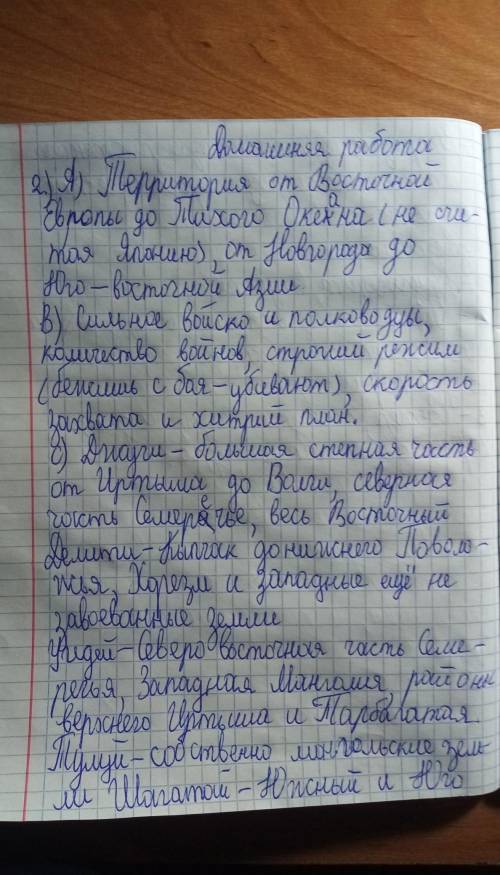 Домашняя работа
2) А) Территория от Восточной
Европы до Тихого Океана (не счи-
тая Японию), от Новгорода до
Юго-восточной Азии
В) Сильное войско и полководцы,
количество войнов, строгий режим
(бежишь с боя-убивают), скорость
захвата и хитрий план.
С) Джучи-большая степная часть
от Иртыша до Волги, северная
часть Семеречье, весь Восточный
Дешти-Кыпчак до нижнего Поволо-
жья, Хорезм и западные ещё не
завоеванные земли
Угидей-Северо восточная часть Семе-
речья, Западная Мангалия, районы
верхнего Иртыша и Тарбагатая
Тулуй-собственно монгольские зем-
ли Шагатай-Южный и Юго